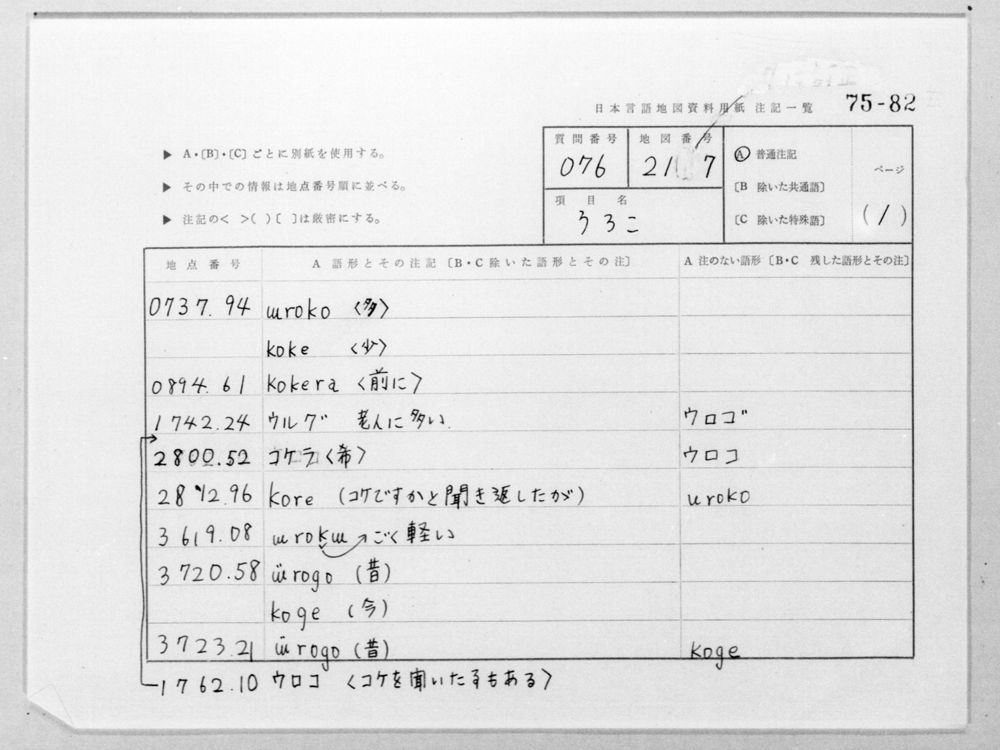 日本言語地図資料用紙 注記一覧 75-82
▶ A・〔B〕・〔C〕ごとに別紙を使用する。
▶ その中での情報は地点番号順に並べる。
▶ 注記の< >( )〔 〕は厳密にする。
質問番号 地図番号
076 21 7
項目名
うろこ
Ⓐ 普通注記
〔B 除いた共通語〕
〔C 除いた特殊語〕
ページ
(1)
地点番号 A 語形とその注記〔B・C除いた語形とその注〕 A 注のない語形〔B・C 残した語形とその注〕
0737.94 ɯroko 〈多〉
koke 〈少〉
0894.61 kokera 〈前に〉
1742.24 ウルグ 老人に多い. ウロゴ
2800.52 コケラ〈希〉 ウロコ
2812.96 kore (コケですかと聞き返したが) uroko
3619.08 ɯrokɯ→ごく軽い
3720.58 ɯ̈rogo (昔)
koge (今)
3723.21 ɯ̈rogo (昔) koge
1762.10 ウロコ 〈コケを聞いた事もある〉